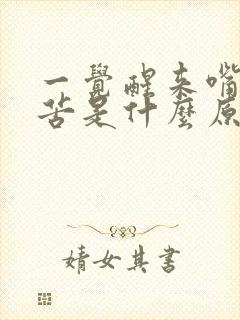 一覺醒來嘴
苦是什麼原
婧女其書